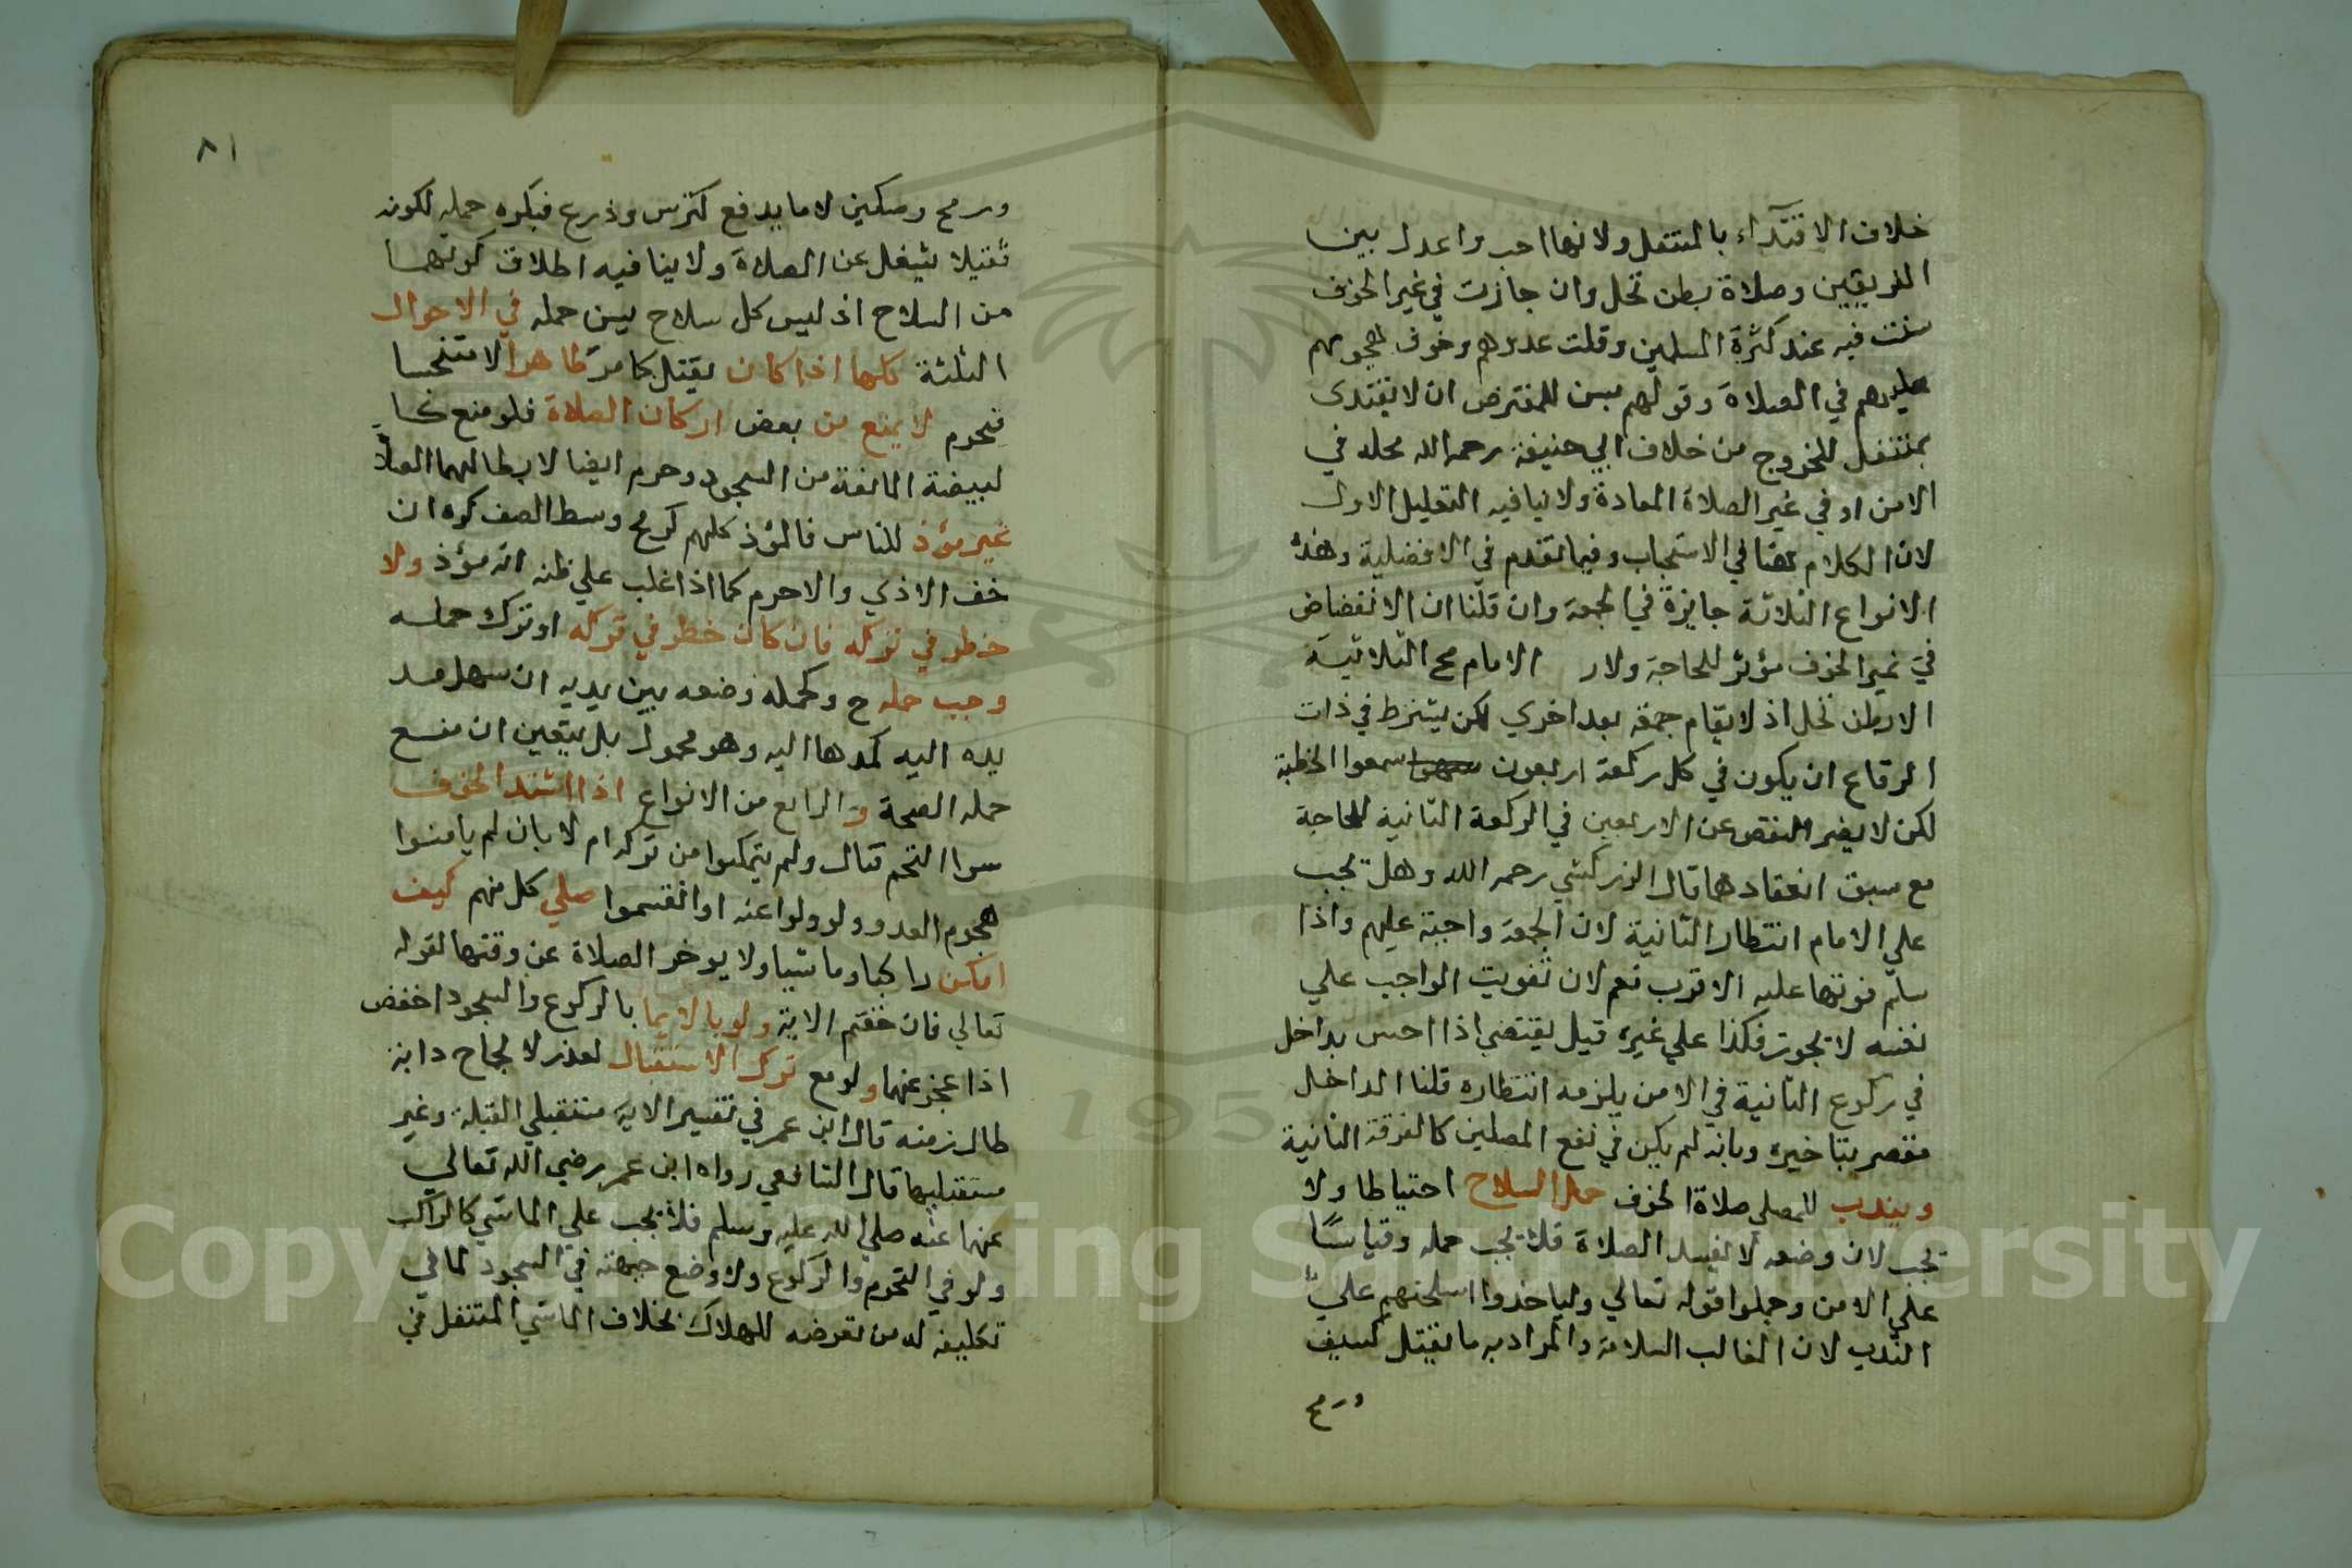 خلاف الاقتدآء بالمتنفل ولانها احب واعدل بين
الفريقين وصلاة بطن نخل وان جازت في غير الخوف
سنت فيه عند كثرة المسلمين وقلت عدوهم وخوف هجومهم
عليهم في الصلاة وقولهم يسن للمفترض ان لا يقتدى
بمتنفل للخروج من خلاف ابي حنيفة رحمه الله محله في
الامن او في غير الصلاة المعادة ولا ينافيه التعليل الاول
لان الكلام هنا في الاستحباب وفيما تقدم في الافضلية وهذه
الانواع الثلاثة جايزة في الجمعة وان قلنا ان الانفضاض
في غير الخوف مؤثر للحاجة ولار الامام مح الثلاثية
الا بطن نخل اذ لا يقام جمعة بعد اخري لكن يشترط في ذات
الرقاع ان يكون في كل ركعة اربعون سمعوا الخطبة
لكن لا يضر النقص عن الاربعين في الركعة الثانية للحاجة
مع سبق انعقادها قال الزركشي رحمه الله وهل تجب
علي الامام انتظار الثانية لان الجمعة واجبة عليهم واذا
سلم فوتها عليه الاقرب نعم لان تفويت الواجب علي
نفسه لا يجوز فكذا علي غيره قيل يقتضي اذا احس بداخل
في ركوع الثانية في الامن يلزمه انتظاره قلنا الداخل
مقصر بتاخيره وبانه لم يكن في نفع المصلين كالفرقة الثانية
ويندب للمصلي صلاة الخوف حمل السلاح احتياطا ولا
يجب لان وضعه لا يفسد الصلاة فلا يجب حمله وقياسًا
علي الامن وحملوا قوله تعالي ولياخذوا اسلحتهم علي
الندب لان الغالب السلامة والمراد به ما يقتل كسيف
ورمح
٨١
ورمح وسكين لا ما يدفع كترس وذرع فيكره حمله لكونه
ثقيلا يشغل عن الصلاة ولا ينافيه اطلاق كونهما
من السلاح اذ ليس كل سلاح يسن حمله في الاحوال
الثلثة كلها اذا كان يقتل كما مر طاهرا لا متنجسا
فيحرم لا يمنع من بعض اركان الصلاة فلو منع كـ
لبيضة المانعة من السجود وحرم ايضا لابطالهما الصلاة
غير مؤذ للناس فالمؤذ كلهم كرمح وسط الصف كره ان
خف الاذي والا حرم كما اذا غلب علي ظنه انه مؤذ ولا
خطر في تركه فان كان خطر في تركه او ترك حمله
وجب حمله ح وكحمله وضعه بين يديه ان سهل مد
يده اليه كمدها اليه وهو محمول بل يتعين ان منع
حمله الصحة والرابع من الانواع اذا اشتد الخوف
سوا التحم قتال ولم يتمكنوا من تركه ام لا بان لم يامنوا
هجوم العدو ولو ولوا عنه او انقسموا صلي كل منهم كيف
امكن راكبا وماشيا ولا يوخر الصلاة عن وقتها لقوله
تعالي فان خفتم الاية ولو بالايما بالركوع والسجود اخفض
اذا عجز عنهما ولو مع ترك الاستقبال لعذر لا لجماح دابة
طال زمنه قال ابن عمر في تفسير الاية مستقبلي القبلة وغير
مستقبليها قال الشافعي رواه ابن عمر رضي الله تعالي
عنهما عنه صلي الله عليه وسلم فلا يجب علي الماشي كالراكب
ولو في التحرم والركوع ولا وضع جبهته في السجود لما في
تكليفه له من تعرضه للهلاك بخلاف الماشي المتنفل في
Copyright © King Saud University
195